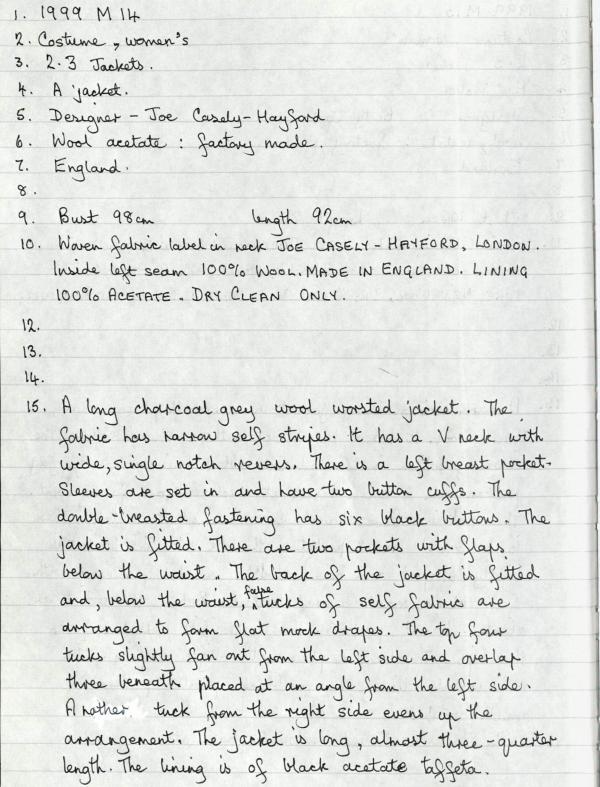 1. 1999 M 14
2. Costume, women's
3. 2.3 Jackets.
4. A jacket.
5. Designer - Joe Casely-Hayford
6. Wool acetate : factory made.
7. England.
8.
9. Bust 98cm length 92cm
10. Woven fabric label in neck JOE CASELY-HAYFORD, LONDON.
Inside left seam 100% WOOL. MADE IN ENGLAND. LINING
100% ACETATE. DRY CLEAN ONLY.
12.
13.
14.
15. A long charcoal grey wool worsted jacket. The
fabric has narrow self stripes. It has a V neck with
wide, single notch revers. There is a left breast pocket.
Sleeves are set in and have two button cuffs. The
double-breasted fastening has six black buttons. The
jacket is fitted. There are two pockets with flaps
below the waist. The back of the jacket is fitted
and, below the waist, false tucks of self fabric are
arranged to form flat mock drapes. The top four
tucks slightly fan out from the left side and overlap
three beneath placed at an angle from the left side.
Another tuck from the right side evens up the
arrangement. The jacket is long, almost three-quarter
length. The lining is of black acetate taffeta.